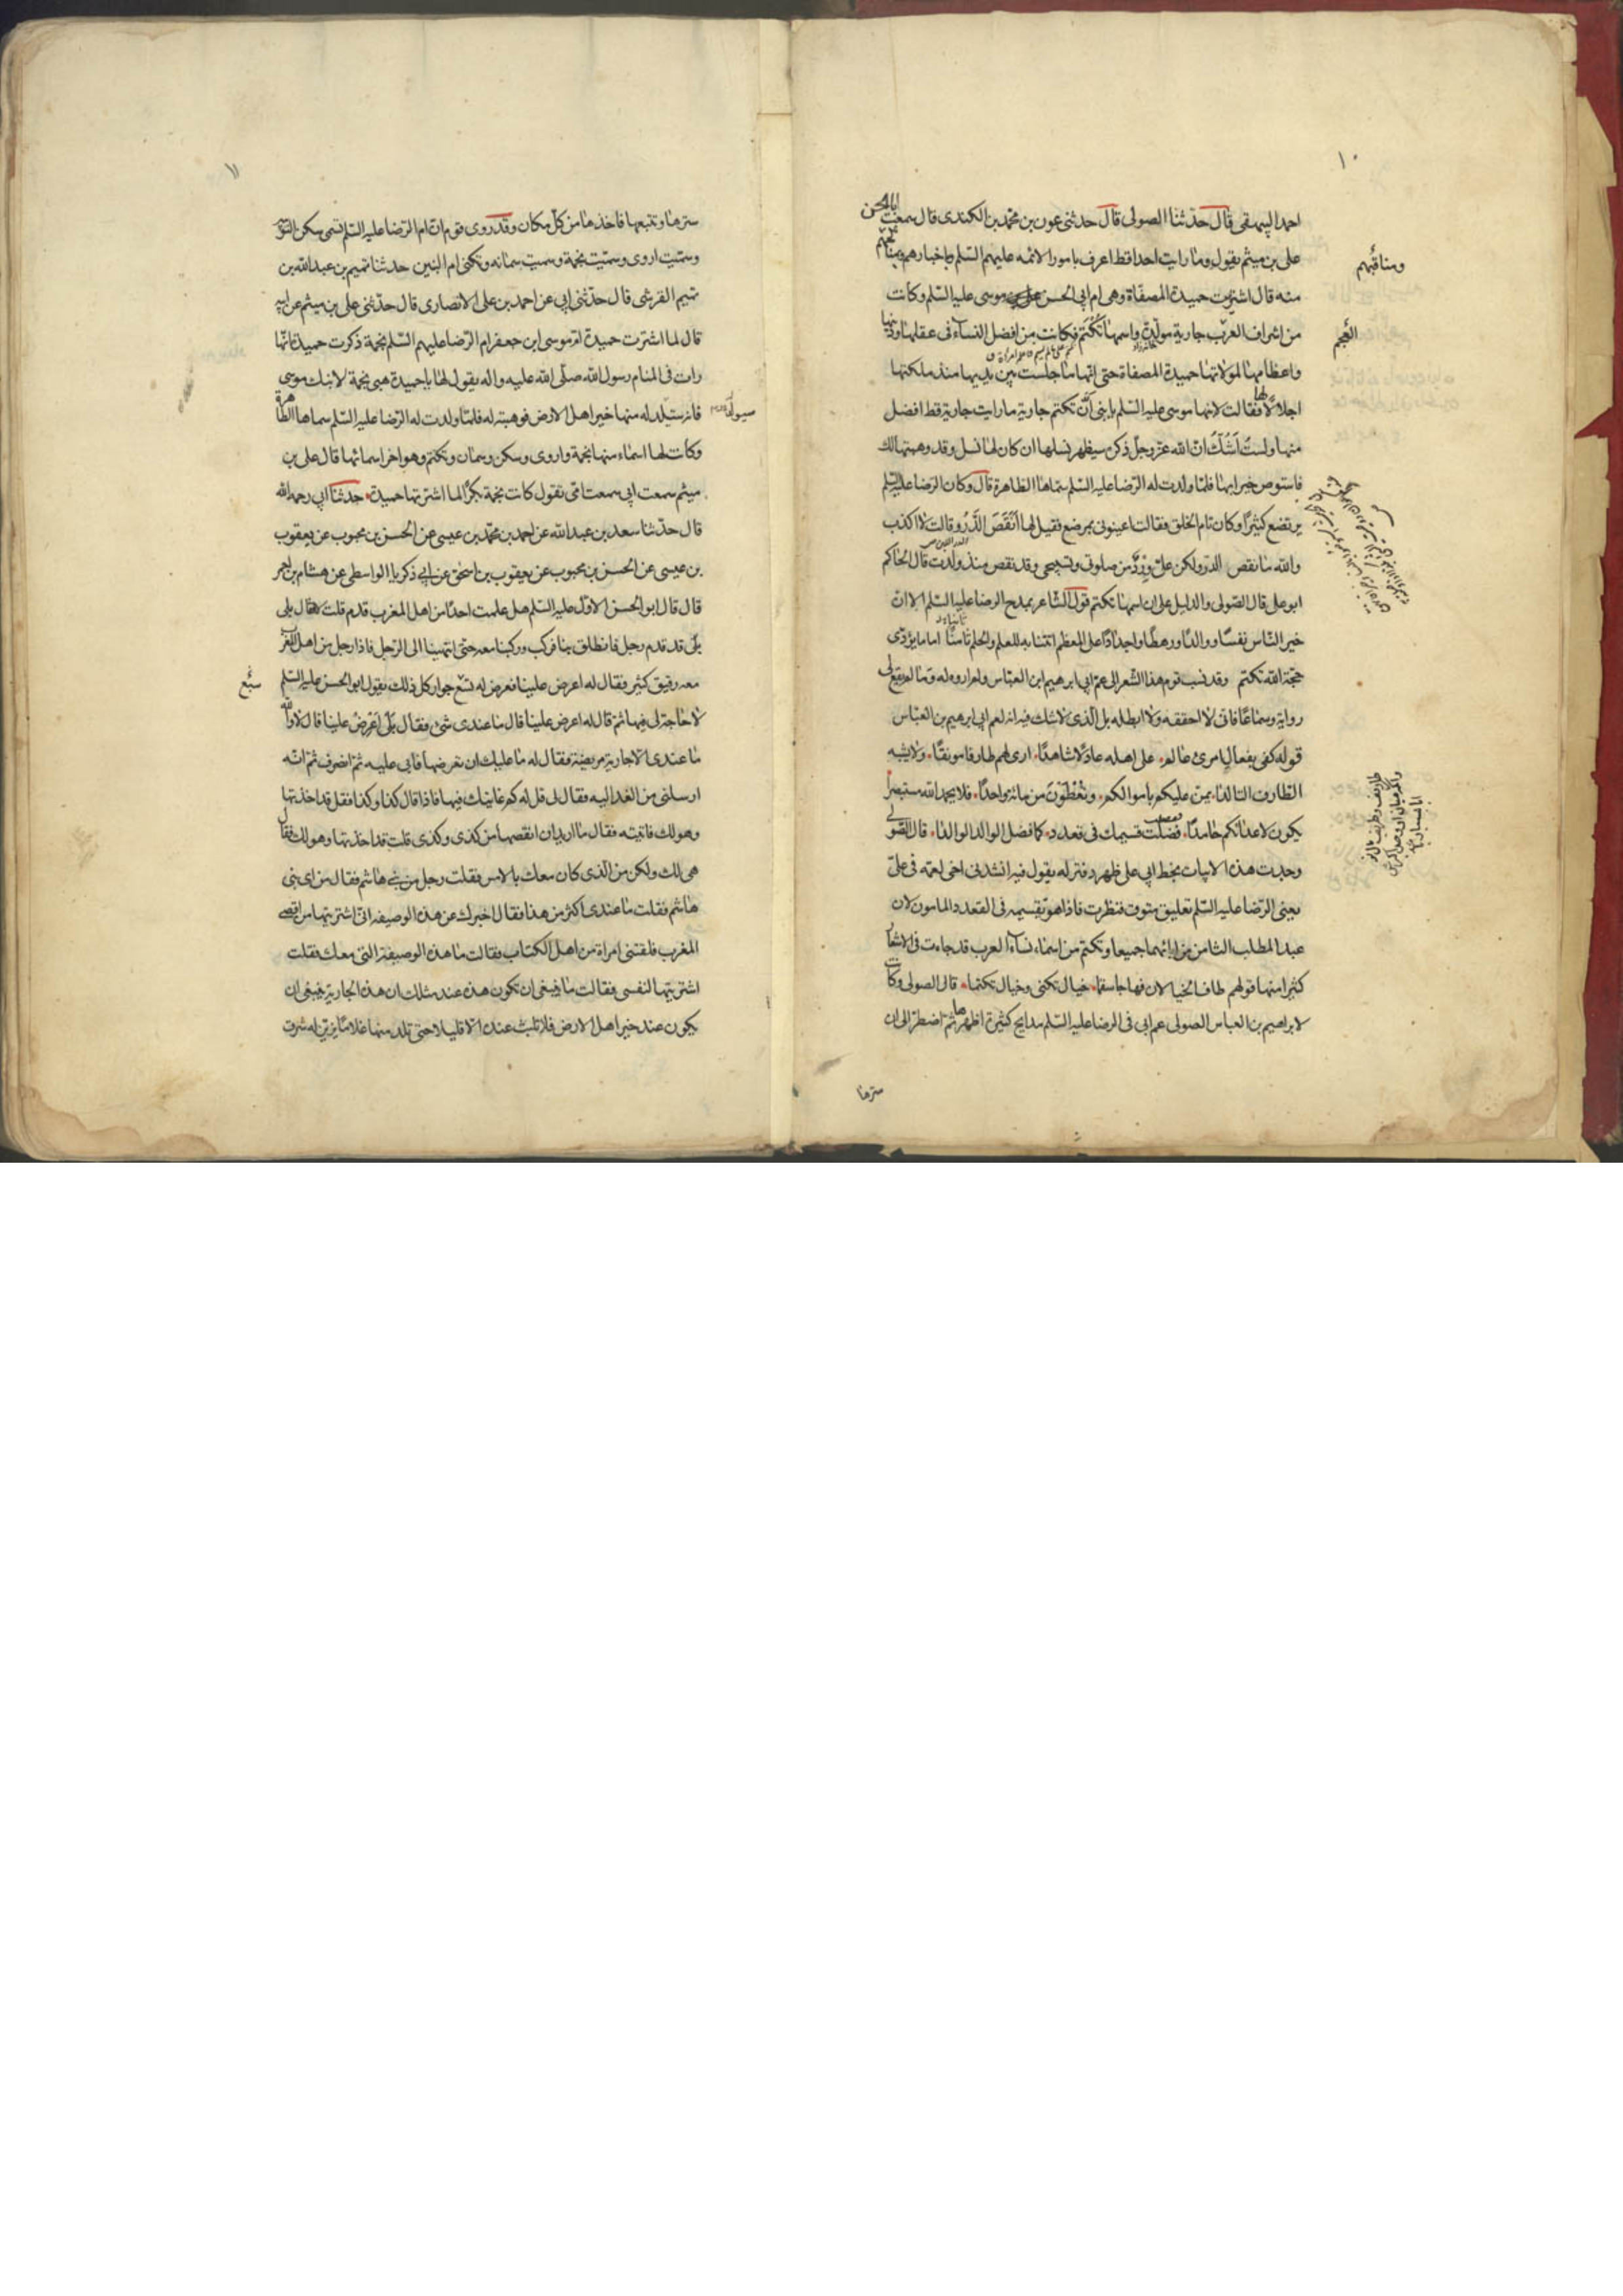 ١٠
احمد البيهقى قال حدثنا الصولى قال حدثنى عون بن محمد بن الكندى قال سمعت ابا الحسن
على بن ميثم يقول وما رايت احدا قط اعرف بامور الائمه عليهم السلم وباخبارهم ومناكحهم
ومناقبهم
منه قال اشتريت حميدة المصفاة وهى ام ابى الحسن موسى عليه السلم وكانت
من اشراف العرب جارية مولدة واسمها تكتم فكانت من افضل النساء فى عقلها ودينها
العجم
واعظامها لمولاتها حميدة المصفاة حتى انها ما جلست بين يديها منذ ملكتها
اجلالا لها فقالت لابنها موسى عليه السلم يا بنى ان تكتم جارية ما رايت جارية قط افضل
منها ولست اشك ان الله عز وجل ذكره سيظهر نسلها ان كان لها نسل وقد وهبتها لك
فاستوص خيرا بها فلما ولدت له الرضا عليه السلم سماها الطاهرة قال وكان الرضا عليه السلم
يرتضع كثيرا وكان تام الخلق فقالت اعينونى بمرضع فقيل لها أنقص الدر وقالت لا اكذب
والله ما نقص الدر ولكن على ورد من صلوتى وتسبيحى وقد نقص منذ ولدت قال الحاكم
ابو على قال الصولى والدليل على ان اسمها تكتم قول الشاعر يمدح الرضا عليه السلم الا ان
خير الناس نفسا ووالدا ورهطا واجدادا على المعظم اتتنا به للعلم والحلم ثامنا اماما يؤدى
حجة الله تكتم وقد نسب قوم هذا الشعر الى عم ابى ابرهيم ابن العباس ولم اروه له وما لم يقع لى
رواية وسماعا فانى لا احققه ولا ابطله بل الذى لا شك فيه انه لعم ابى ابرهيم بن العباس
قوله كفى بفعال امرئ عالم على اهله عادلا شاهدا ارى لهم طارفا مونقا ولا يشبه
الطارف التالدا يمن عليكم باموالكم وتعطون من مائة واحدا فلا يحمد الله مستبصرا
يكون لاعدائكم حامدا فضلت قسيمك فى قعدد كما فضل الوالد الوالدا قال الصولى
وجدت هذه الابيات بخط ابى على ظهر دفتر له يقول فيه انشدنى اخى لعمه فى على
يعنى الرضا عليه السلم تعليق متوق فنظرت فاذا هو بقسيمه فى القعدد المامون لان
عبد المطلب الثامن من ابائهما جميعا وتكتم من اسماء نساء العرب قد جاءت فى الاشعار
كثيرا منها قولهم طاف الخيالان فهاجا سقما خيال تكنى وخيال تكتما قال الصولى وكانت
لابرهيم بن العباس الصولى عم ابى فى الرضا عليه السلم مدايح كثيرة اظهرها ثم اضطر الى ان
سترها
١١
سترها وتتبعها فاخذها من كل مكان وقد روى قوم ان ام الرضا عليه السلم تسمى سكن النوبية
وسميت اروى وسميت نجمة وسميت سمانه وتكنى ام البنين حدثنا تميم بن عبد الله بن
تميم القرشى قال حدثنى ابى عن احمد بن على الانصارى قال حدثنى على بن ميثم عن ابيه
قال لما اشترت حميدة ام موسى ابن جعفر ام الرضا عليهم السلم نجمة ذكرت حميدة انها
رات فى المنام رسول الله صلى الله عليه واله يقول لها يا حميدة هبى نجمة لابنك موسى
فانه ستلد له منها خير اهل الارض فوهبته له فلما ولدت له الرضا عليه السلم سماها الطاهرة
سيولد
وكانت لها اسماء منها نجمة واروى وسكن وسمان وتكتم وهو اخر اسمائها قال على بن
ميثم سمعت ابى سمعت امى تقول كانت نجمة بكرا لما اشترتها حميدة حدثنا ابى رحمه الله
قال حدثنا سعد بن عبد الله عن احمد بن محمد بن عيسى عن الحسن بن محبوب عن يعقوب
بن عيسى عن الحسن بن محبوب عن يعقوب بن اسحق عن ابى ذكريا الواسطى عن هشام بن احمر
قال قال ابو الحسن الاول عليه السلم هل علمت احدا من اهل المغرب قدم قلت لا فقال بلى
بلى قد قدم رجل فانطلق بنا فركب وركبنا معه حتى انتهينا الى الرجل فاذا رجل من اهل المغرب
معه رقيق كثير فقال له اعرض علينا فعرض له تسع جوار كل ذلك يقول ابو الحسن عليه السلم
سبع
لا حاجة لى فيها ثم قال له اعرض علينا قال ما عندى شئ فقال بلى اعرض علينا قال لا والله
ما عندى الا جارية مريضة فقال له ما عليك ان تعرضها فابى عليه ثم انصرف ثم انه
ارسلنى من الغد اليه فقال لى قل له كم غايتك فيها فاذا قال كذا وكذا فقل قد اخذتها
وهو لك فاتيته فقال ما اريد ان انقصها من كذى وكذى قلت قد اخذتها وهو لك فقال
هى لك ولكن من الذى كان معك بالامس فقلت رجل من بنى هاشم فقال من اى بنى
هاشم فقلت ما عندى اكثر من هذا فقال اخبرك عن هذه الوصيفه انى اشتريتها من اقصى
المغرب فلقتنى امراة من اهل الكتاب فقالت ما هذه الوصيفة التى معك فقلت
اشتريتها لنفسى فقالت ما ينبغى ان تكون هذه عند مثلك ان هذه الجارية ينبغى ان
يكون عند خير اهل الارض فلا تلبث عنده الا قليلا حتى تلد منها غلاما يدين له شرق